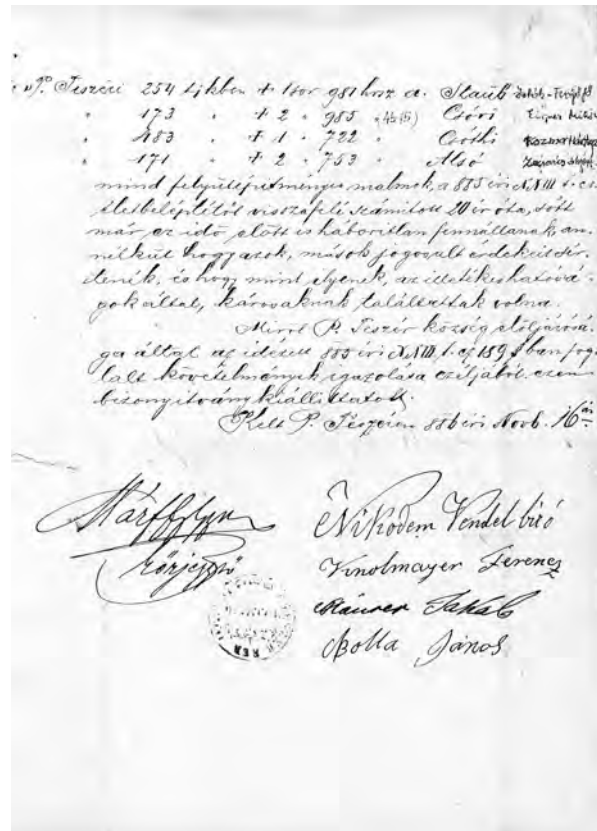 P. Teszéri 254 tjkben + 1 sor 981 hrsz a. Staub
" 173 " + 2 " 985 " Csóri
" 483 " + 1 " 722 " Csóthi
" 171 " + 2 " 753 " Alsó
mind felyülépitményes malmok, a 885 évi XXIII t. cz.
életbeléptétől visszafelé számitott 20 év óta, sőtt
már az idő előtt is háboritlan fennállanak, an-
nélkül hogy azok, mások jogosult érdekeit sér-
tenék, és hogy mint ilyenek, az illetékes hatósá-
gok által, károsaknak találtattak volna.
Miről P. Teszér község elöljárósá-
ga által az idézett 885 évi XXIII. t. cz 189 § ban fog-
lalt követelmények igazolása cziljából ezen
bizonyitvány kiállittatott.
Kelt P. Teszéren 886 évi Novb. 16 án
körjegyző
Nikodem Vendel biró
Knolmayer Ferencz
Mauser Jakab
Bolla János